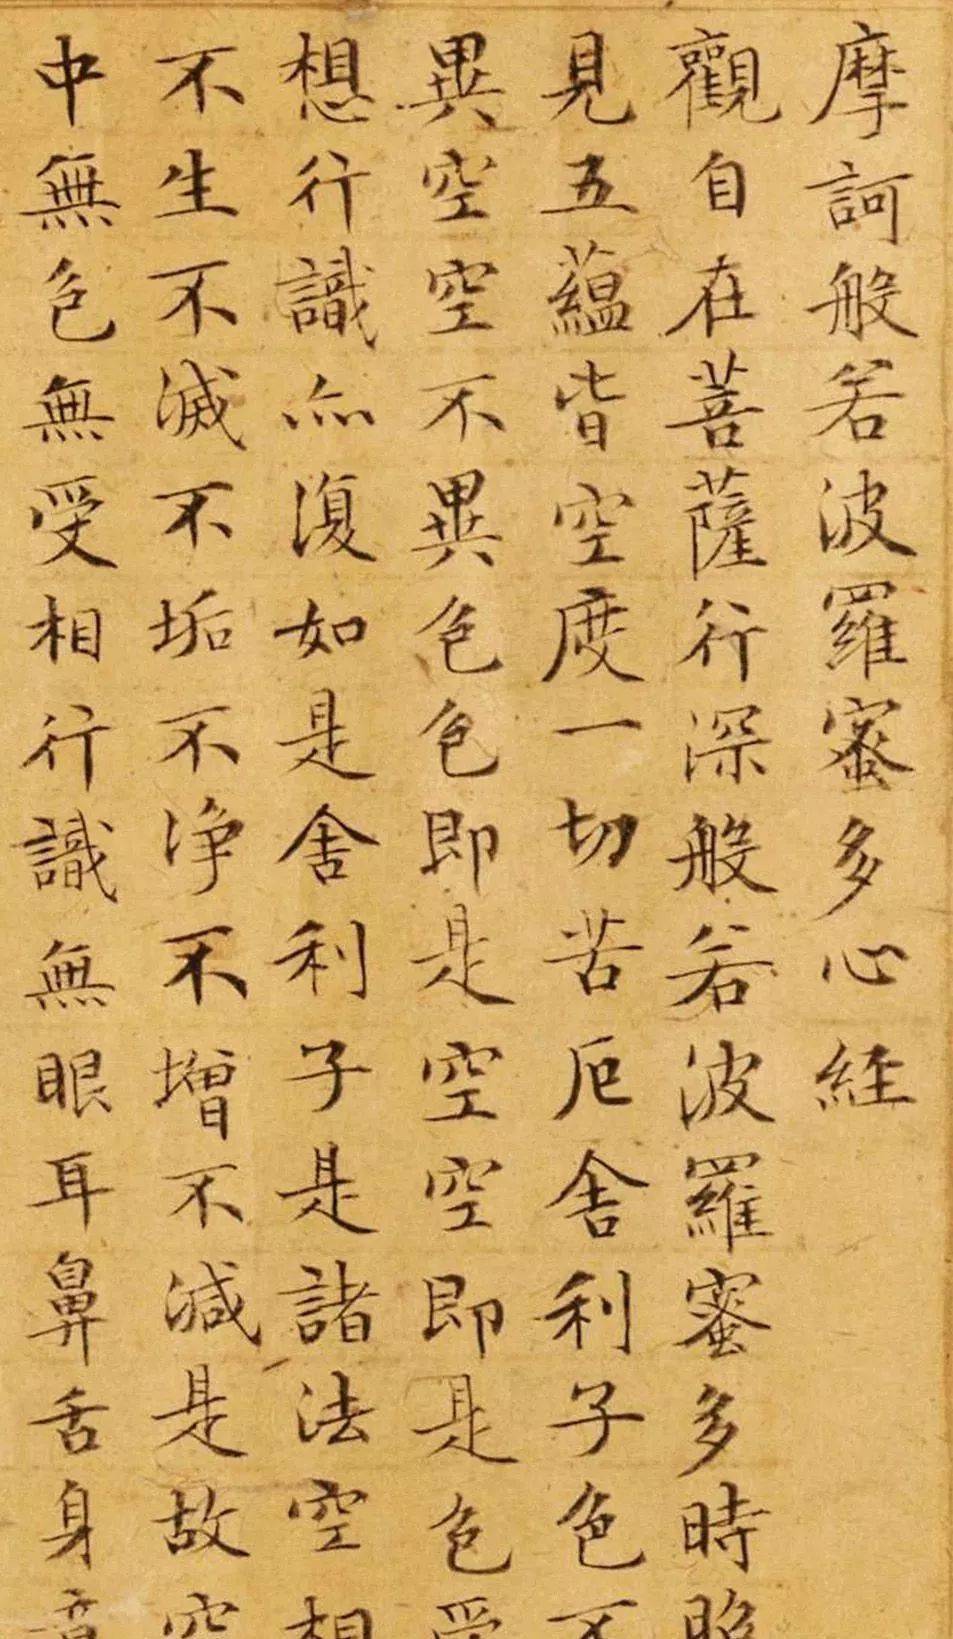 摩訶般若波羅蜜多心経
觀自在菩薩行深般若波羅蜜多時照
見五蘊皆空度一切苦厄舍利子色不
異空空不異色色即是空空即是色受
想行識亦復如是舍利子是諸法空相
不生不滅不垢不净不增不減是故空
中無色無受相行識無眼耳鼻舌身意